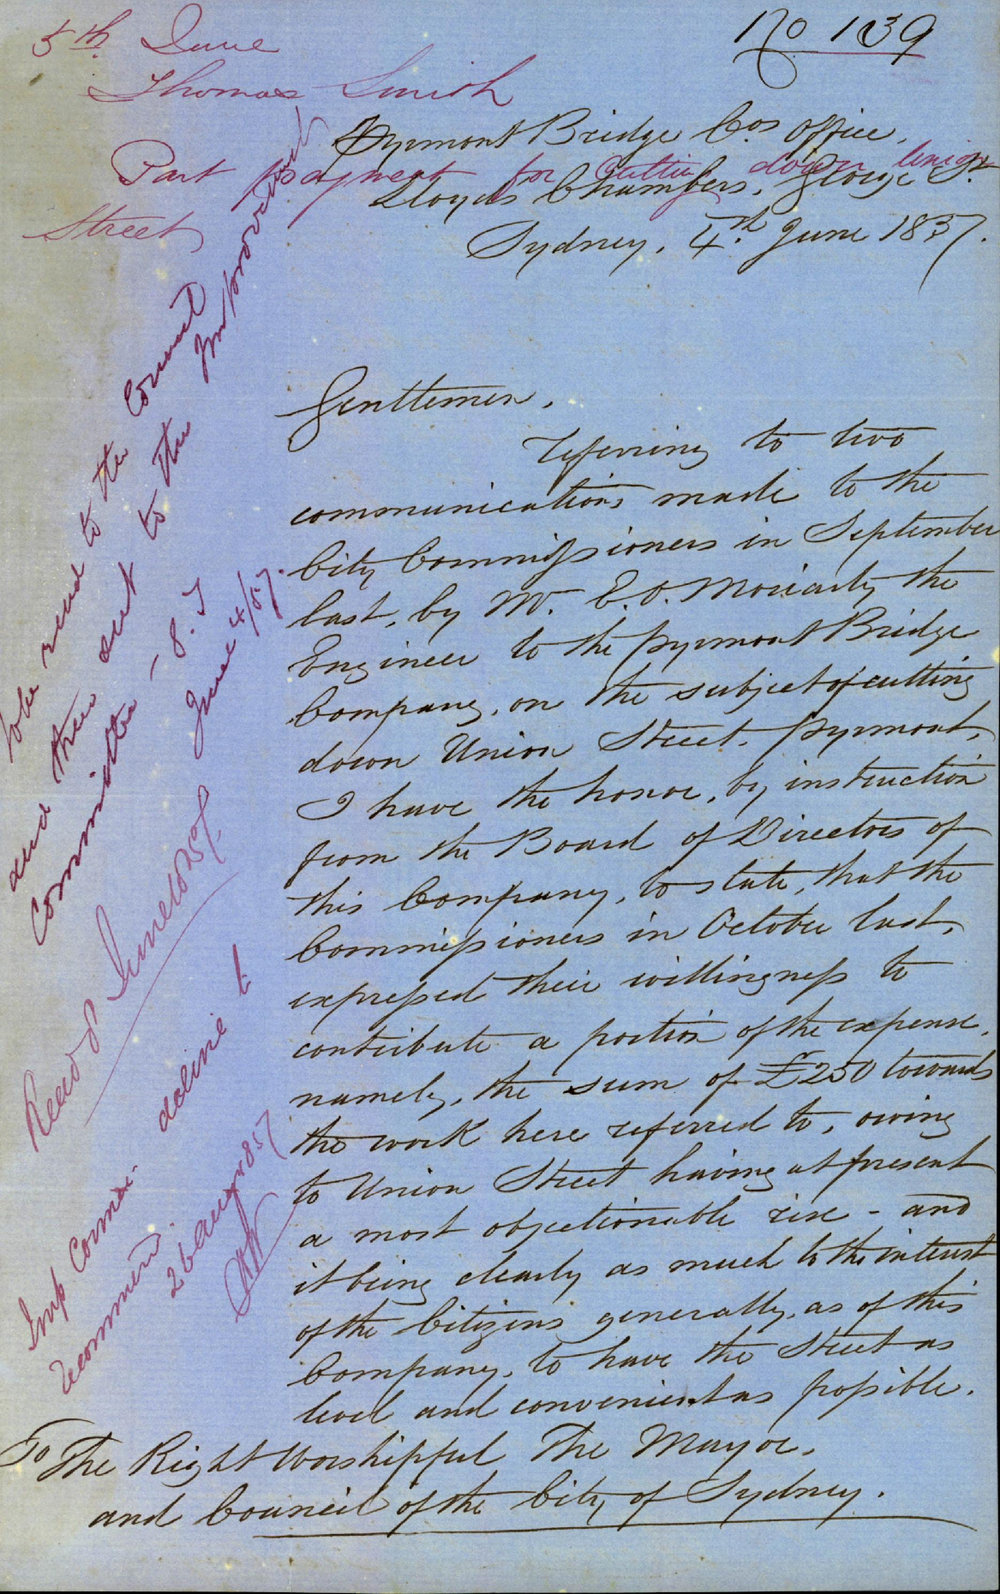 No 139
5th June
Thomas Smith
Part payment for Cutting down Union
Street
Pyrmont Bridge Cos Office,
Lloyds Chambers, George St.
Sydney, 4th June 1857.
To be read to the Council
and then sent to the Improvement
Committee -
June 4/57.
Gentlemen,
Referring to two
communications made to the
City Commissioners in September
last, by Mr. E. O. Moriarty the
Engineer to the Pyrmont Bridge
Company, on the subject of cutting
down Union Street, Pyrmont,
I have the honor, by instruction
from the Board of Directors of
this Company, to state, that the
Commissioners in October last,
expressed their willingness to
contribute a portion of the expense,
namely, the sum of £250 towards
the work here referred to, owing
to Union Street having at present
a most objectionable rise - and
it being clearly as much to the interest
of the Citizens generally, as of this
Company, to have the Street as
level and convenient as possible.
Imp Comee
recommend decline
26 Aug 1857
To The Right Worshipful The Mayor,
and Council of the City of Sydney.